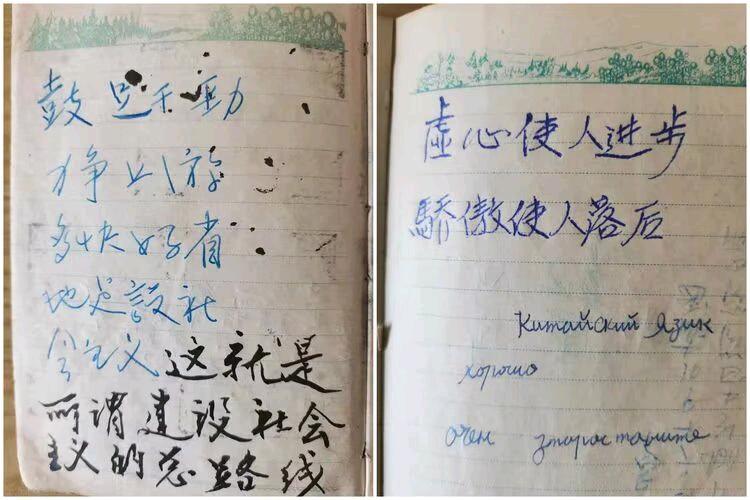 鼓足干勁
力争上游
多快好省
地建設社
会主义这就是
所谓建设社会
主义的总路线
虛心使人进步
驕傲使人落后
Китайский язик
хорошо
очен